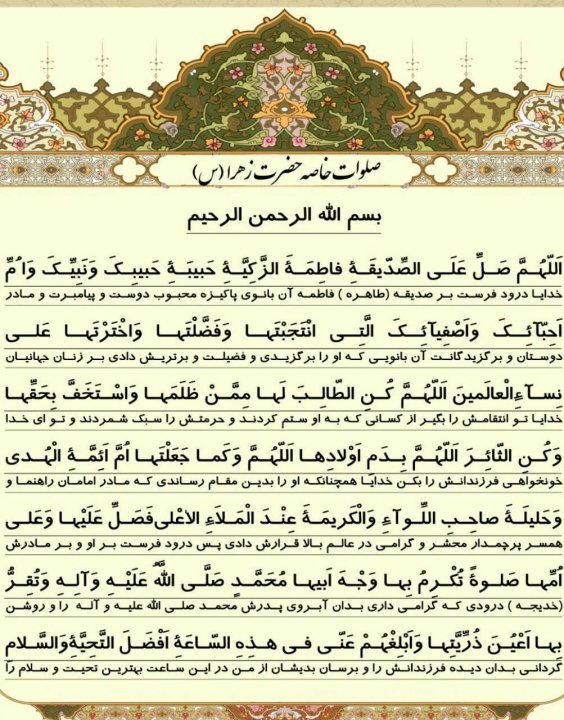 صلوات خاصه حضرت زهرا (س)
بسم الله الرحمن الرحیم
اَللّهُمَّ صَلِّ عَلَی الصِّدّیقَةِ فاطِمَةَ الزَّکِیَّةِ حَبیبَةِ حَبیبِکَ وَنَبِیِّکَ وَاُمِّ
خدایا درود فرست بر صدیقه (طاهره) فاطمه آن بانوی پاکیزه محبوب دوست و پیامبرت و مادر
اَحِبّآئِکَ وَاَصْفِیآئِکَ الَّتِی انْتَجَبْتَها وَفَضَّلْتَها وَاخْتَرْتَها عَلی
دوستان و برگزیدگانت آن بانویی که او را برگزیدی و فضیلت و برتریش دادی بر زنان جهانیان
نِسآءِالْعالَمینَ اَللّهُمَّ کُنِ الطّالِبَ لَها مِمَّنْ ظَلَمَها وَاسْتَخَفَّ بِحَقِّها
خدایا تو انتقامش را بگیر از کسانی که به او ستم کردند و حرمتش را سبک شمردند و تو ای خدا
وَکُنِ الثّائِرَ اَللّهُمَّ بِدَمِ اَوْلادِها اَللّهُمَّ وَکَما جَعَلْتَها اُمَّ اَئِمَّةِ الْهُدی
خونخواهی فرزندانش را بکن خدایا همچنانکه او را بدین مقام رساندی که مادر امامان راهنما و
وَحَلیلَةَ صاحِبِ اللِّوآءِ وَالْکَریمَةَ عِنْدَ الْمَلاَءِ الاْعْلی فَصَلِّ عَلَیْها وَعَلی
همسر پرچمدار محشر و گرامی در عالم بالا قرارش دادی پس درود فرست بر او و بر مادرش
اُمِّها صَلوةً تُکْرِمُ بِها وَجْهَ اَبیها مُحَمَّدٍ صَلَّی اللَّهُ عَلَیْهِ وَآلِهِ وَتُقِرُّ
(خدیجه) درودی که گرامی داری بدان آبروی پدرش محمد صلی الله علیه و آله را و روشن
بِها اَعْیُنَ ذُرِّیَّتِها وَاَبْلِغْهُمْ عَنّی فی هذِهِ السّاعَةِ اَفْضَلَ التَّحِیَّةِوَالسَّلامِ
گردانی بدان دیده فرزندانش را و برسان بدیشان از من در این ساعت بهترین تحیت و سلام را